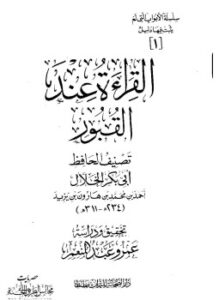 سلسلة الأبواب التي لم
يثبت فيها دليل
[١]
القراءة عند
القبور
تصنيف الحافظ
أبي بكر الخلال
أحمد بن محمد بن هارون بن يزيد
(٢٣٤-٣١١هـ)
تحقيق ودراسة
عمرو عبد المنعم